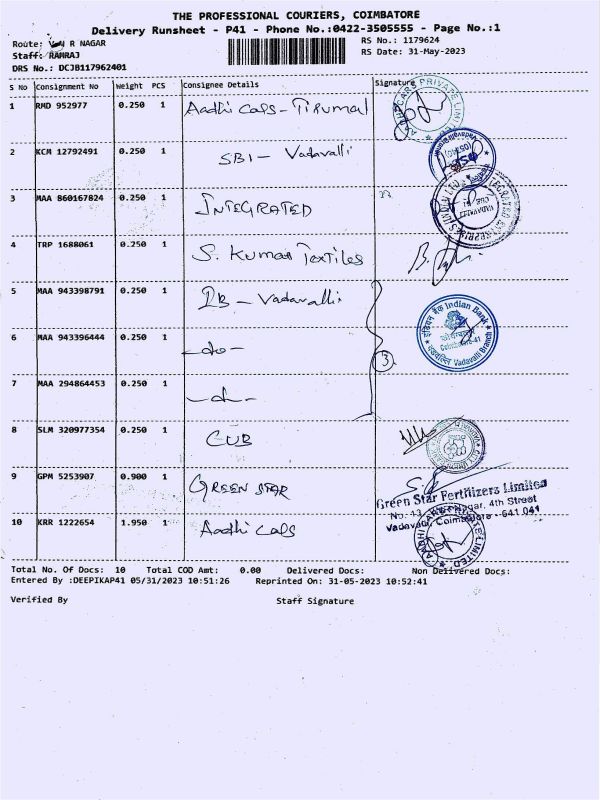 THE PROFESSIONAL COURIERS, COIMBATORE
Delivery Runsheet - P41 - Phone No.:0422-3505555 - Page No.:1
Route: R NAGAR
RS No.: 1179624
Staff: RAMRAJ
RS Date: 31-May-2023
DRS No.: DCJB117962401
S No Consignment No Weight PCS Consignee Details Signature
1 RMD 952977 0.250 1 Aadhi Cars - Tirumal
2 KCM 12792491 0.250 1 SBI - Vadavalli
3 MAA 860167824 0.250 1 INTEGRATED
4 TRP 1688061 0.250 1 S. Kumar Textiles
5 MAA 943398791 0.250 1 IB - Vadavalli
6 MAA 943396444 0.250 1 -do-
3
7 MAA 294864453 0.250 1 -do-
8 SLM 320977354 0.250 1 CUB
9 GPM 5253907 0.900 1 GREEN STAR
10 KRR 1222654 1.950 1 Aadhi Cars
AADHI CARS PRIVATE LIMITED
इंडियन बैंक Indian Bank
Coimbatore-41
Vadavalli Branch
Green Star Fertilizers Limited
No. 13, Nagar, 4th Street
Vadavalli, Coimbatore - 641 041
Total No. Of Docs: 10 Total COD Amt: 0.00 Delivered Docs: Non Delivered Docs:
Entered By :DEEPIKAP41 05/31/2023 10:51:26 Reprinted On: 31-05-2023 10:52:41
Verified By Staff Signature